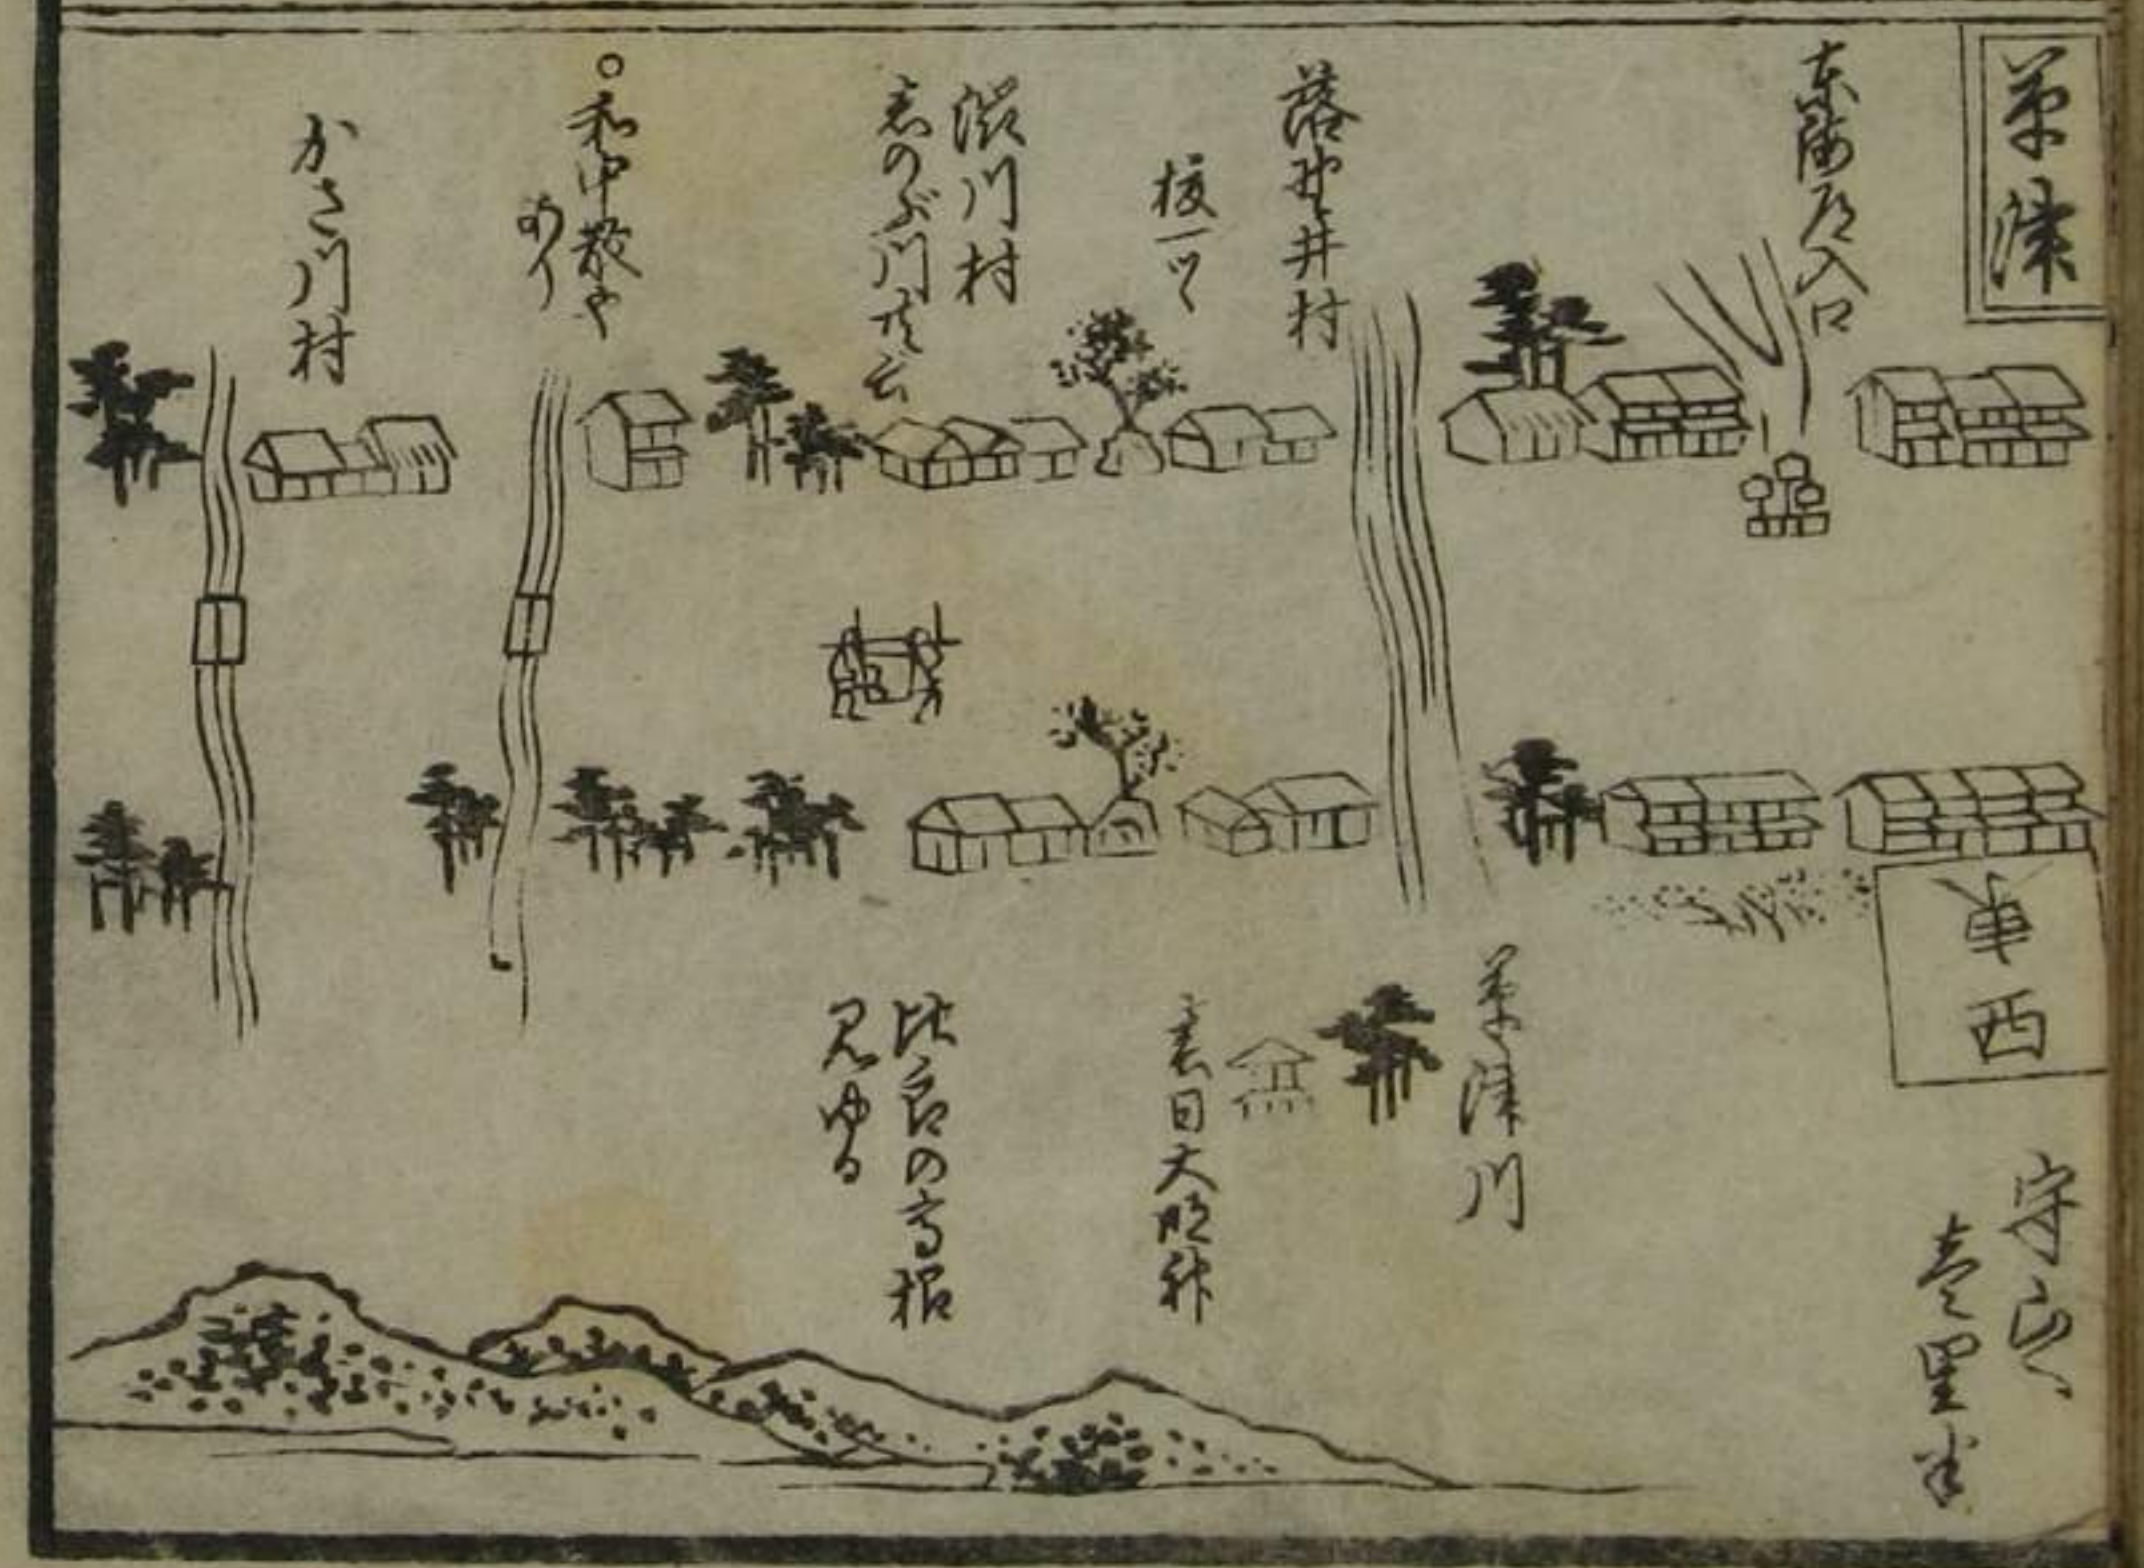 草津
東海道入口
落野井村
榎一ツヽ
渋川村
志のぶ川共云
○和中散や
あり
かさ川村
東西
守山へ
壱里半
草津川
春日大明神
比良の高根
見ゆる